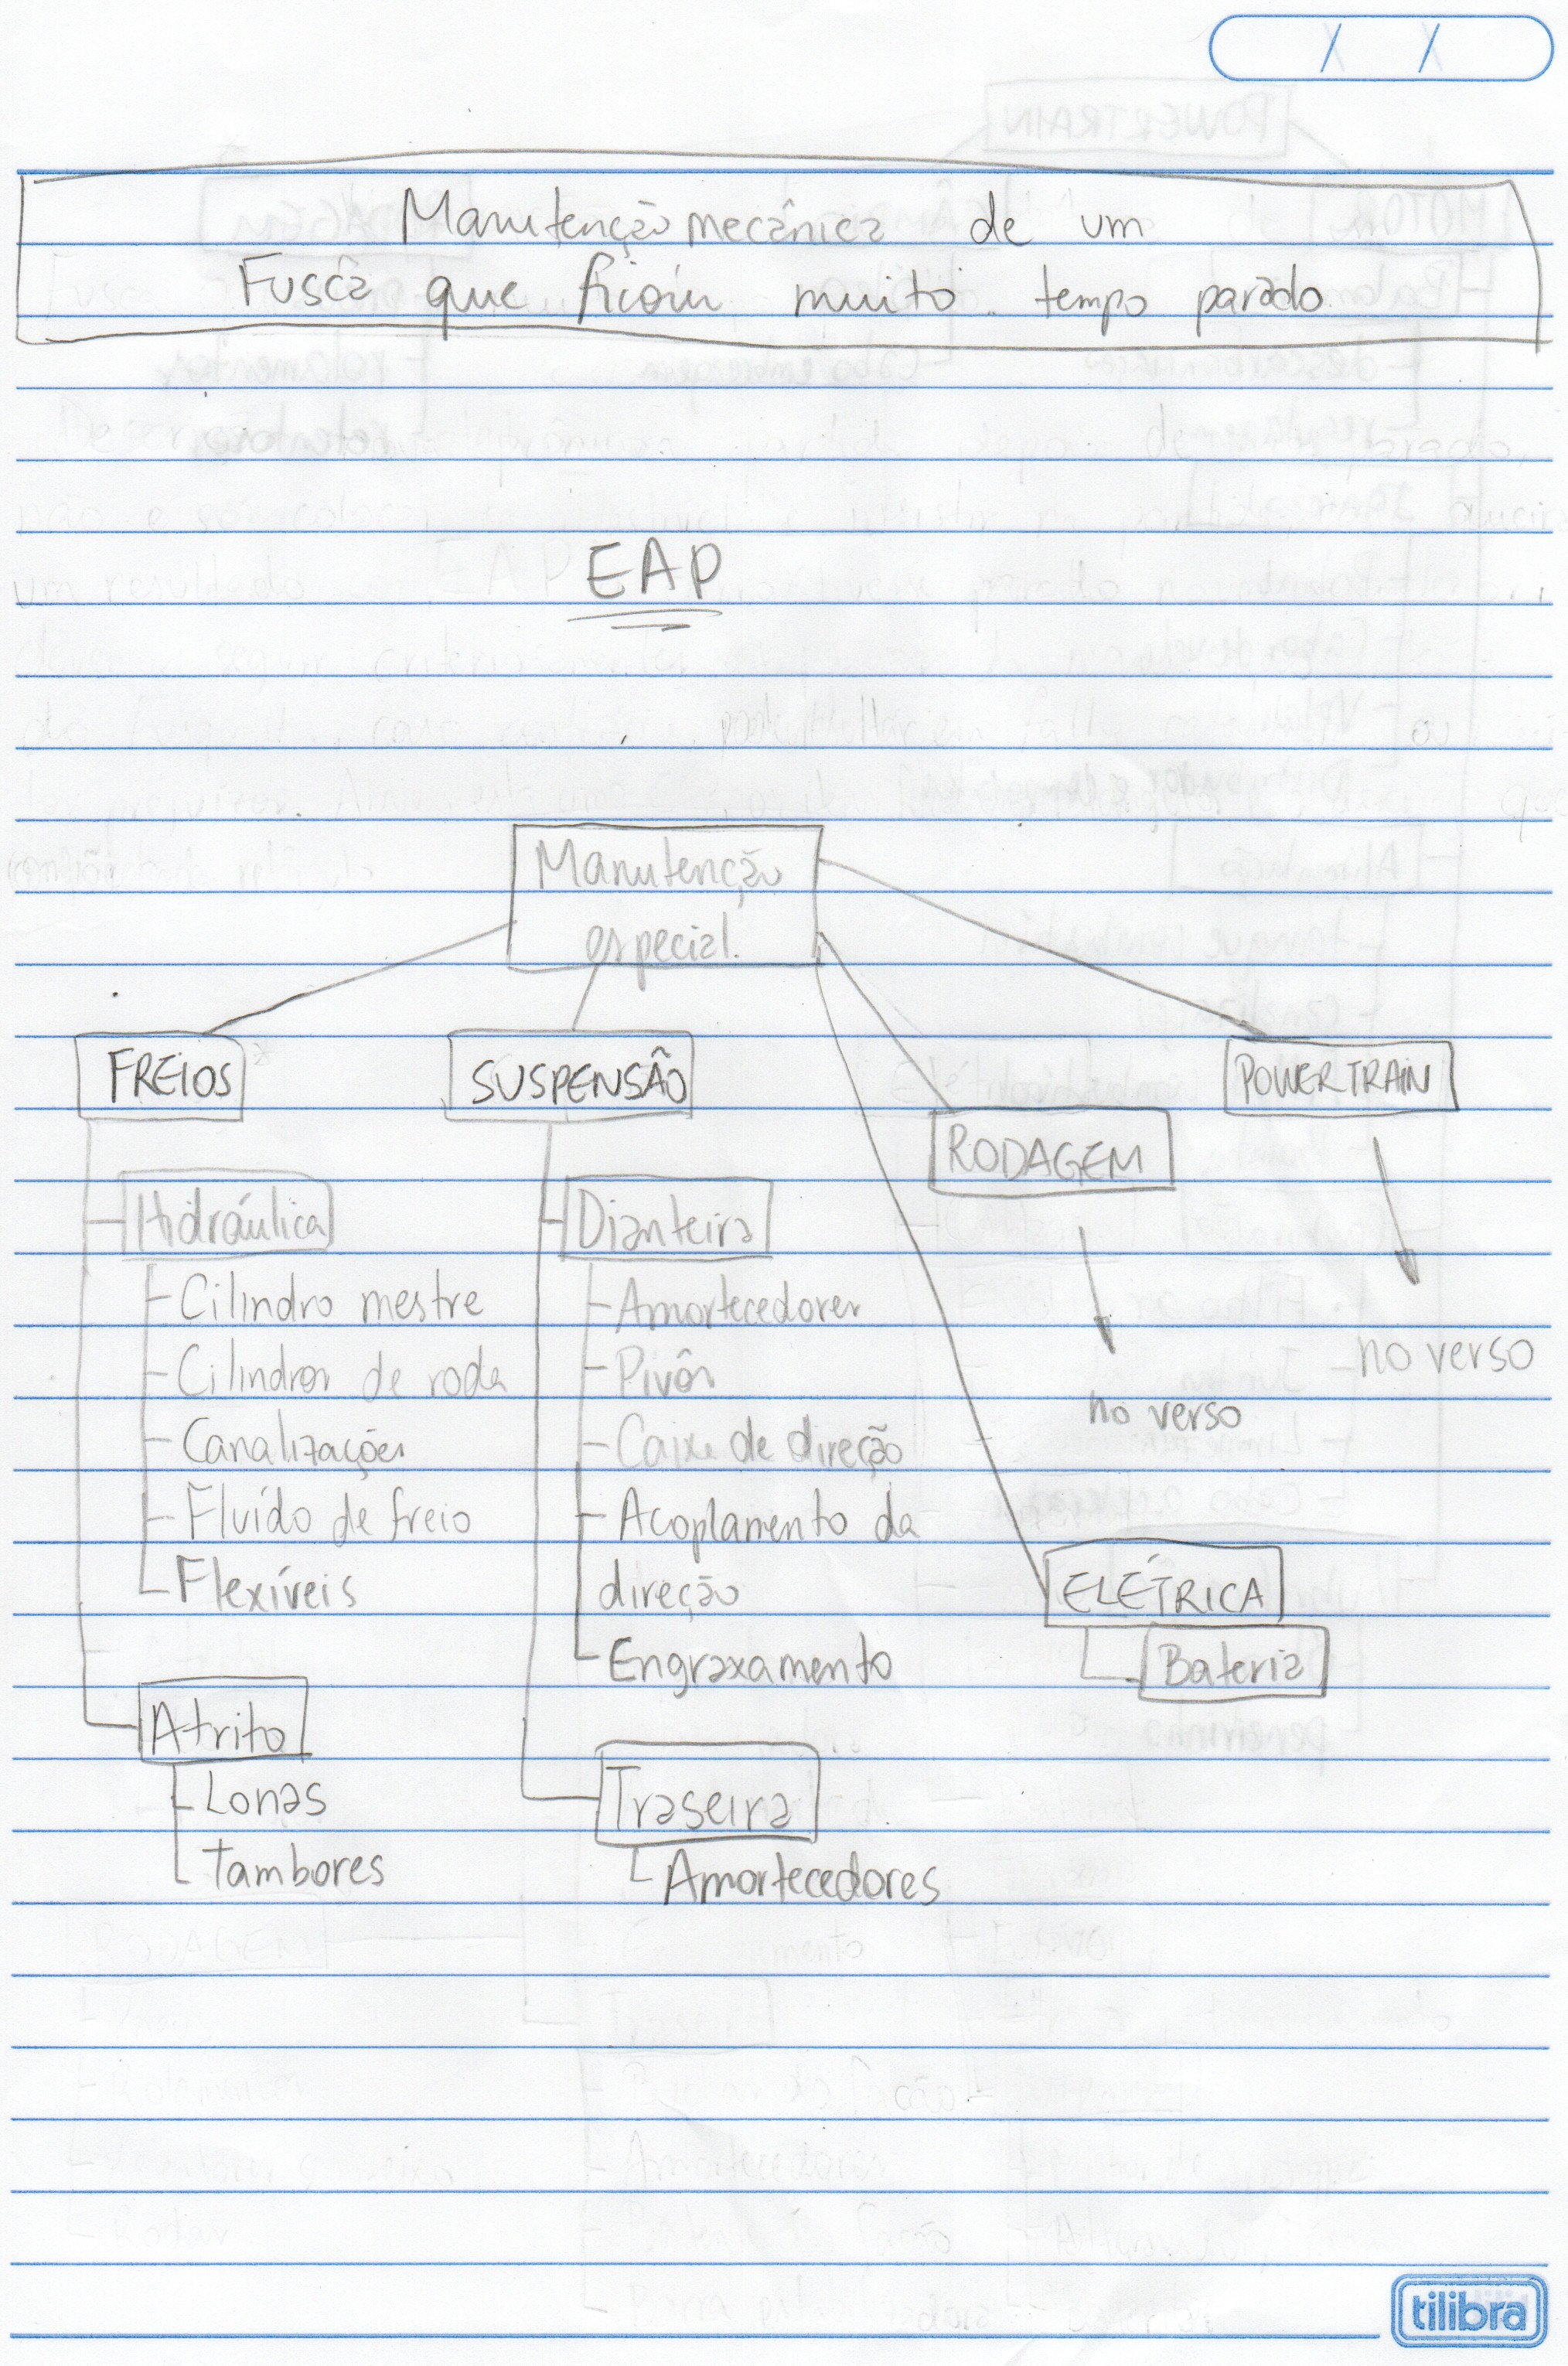 Manutenção mecânica de um
Fusca que ficou muito tempo parado
EAP
Manutenção
especial.
FREIOS
Hidráulica
Cilindro mestre
Cilindros de roda
Canalizações
Fluído de freio
Flexíveis
Atrito
Lonas
Tambores
SUSPENSÃO
Dianteira
Amortecedores
Pivôs
Caixa de direção
Acoplamento da
direção
Engraxamento
Traseira
Amortecedores
RODAGEM
no verso
POWERTRAIN
no verso
ELÉTRICA
Bateria
tilibra